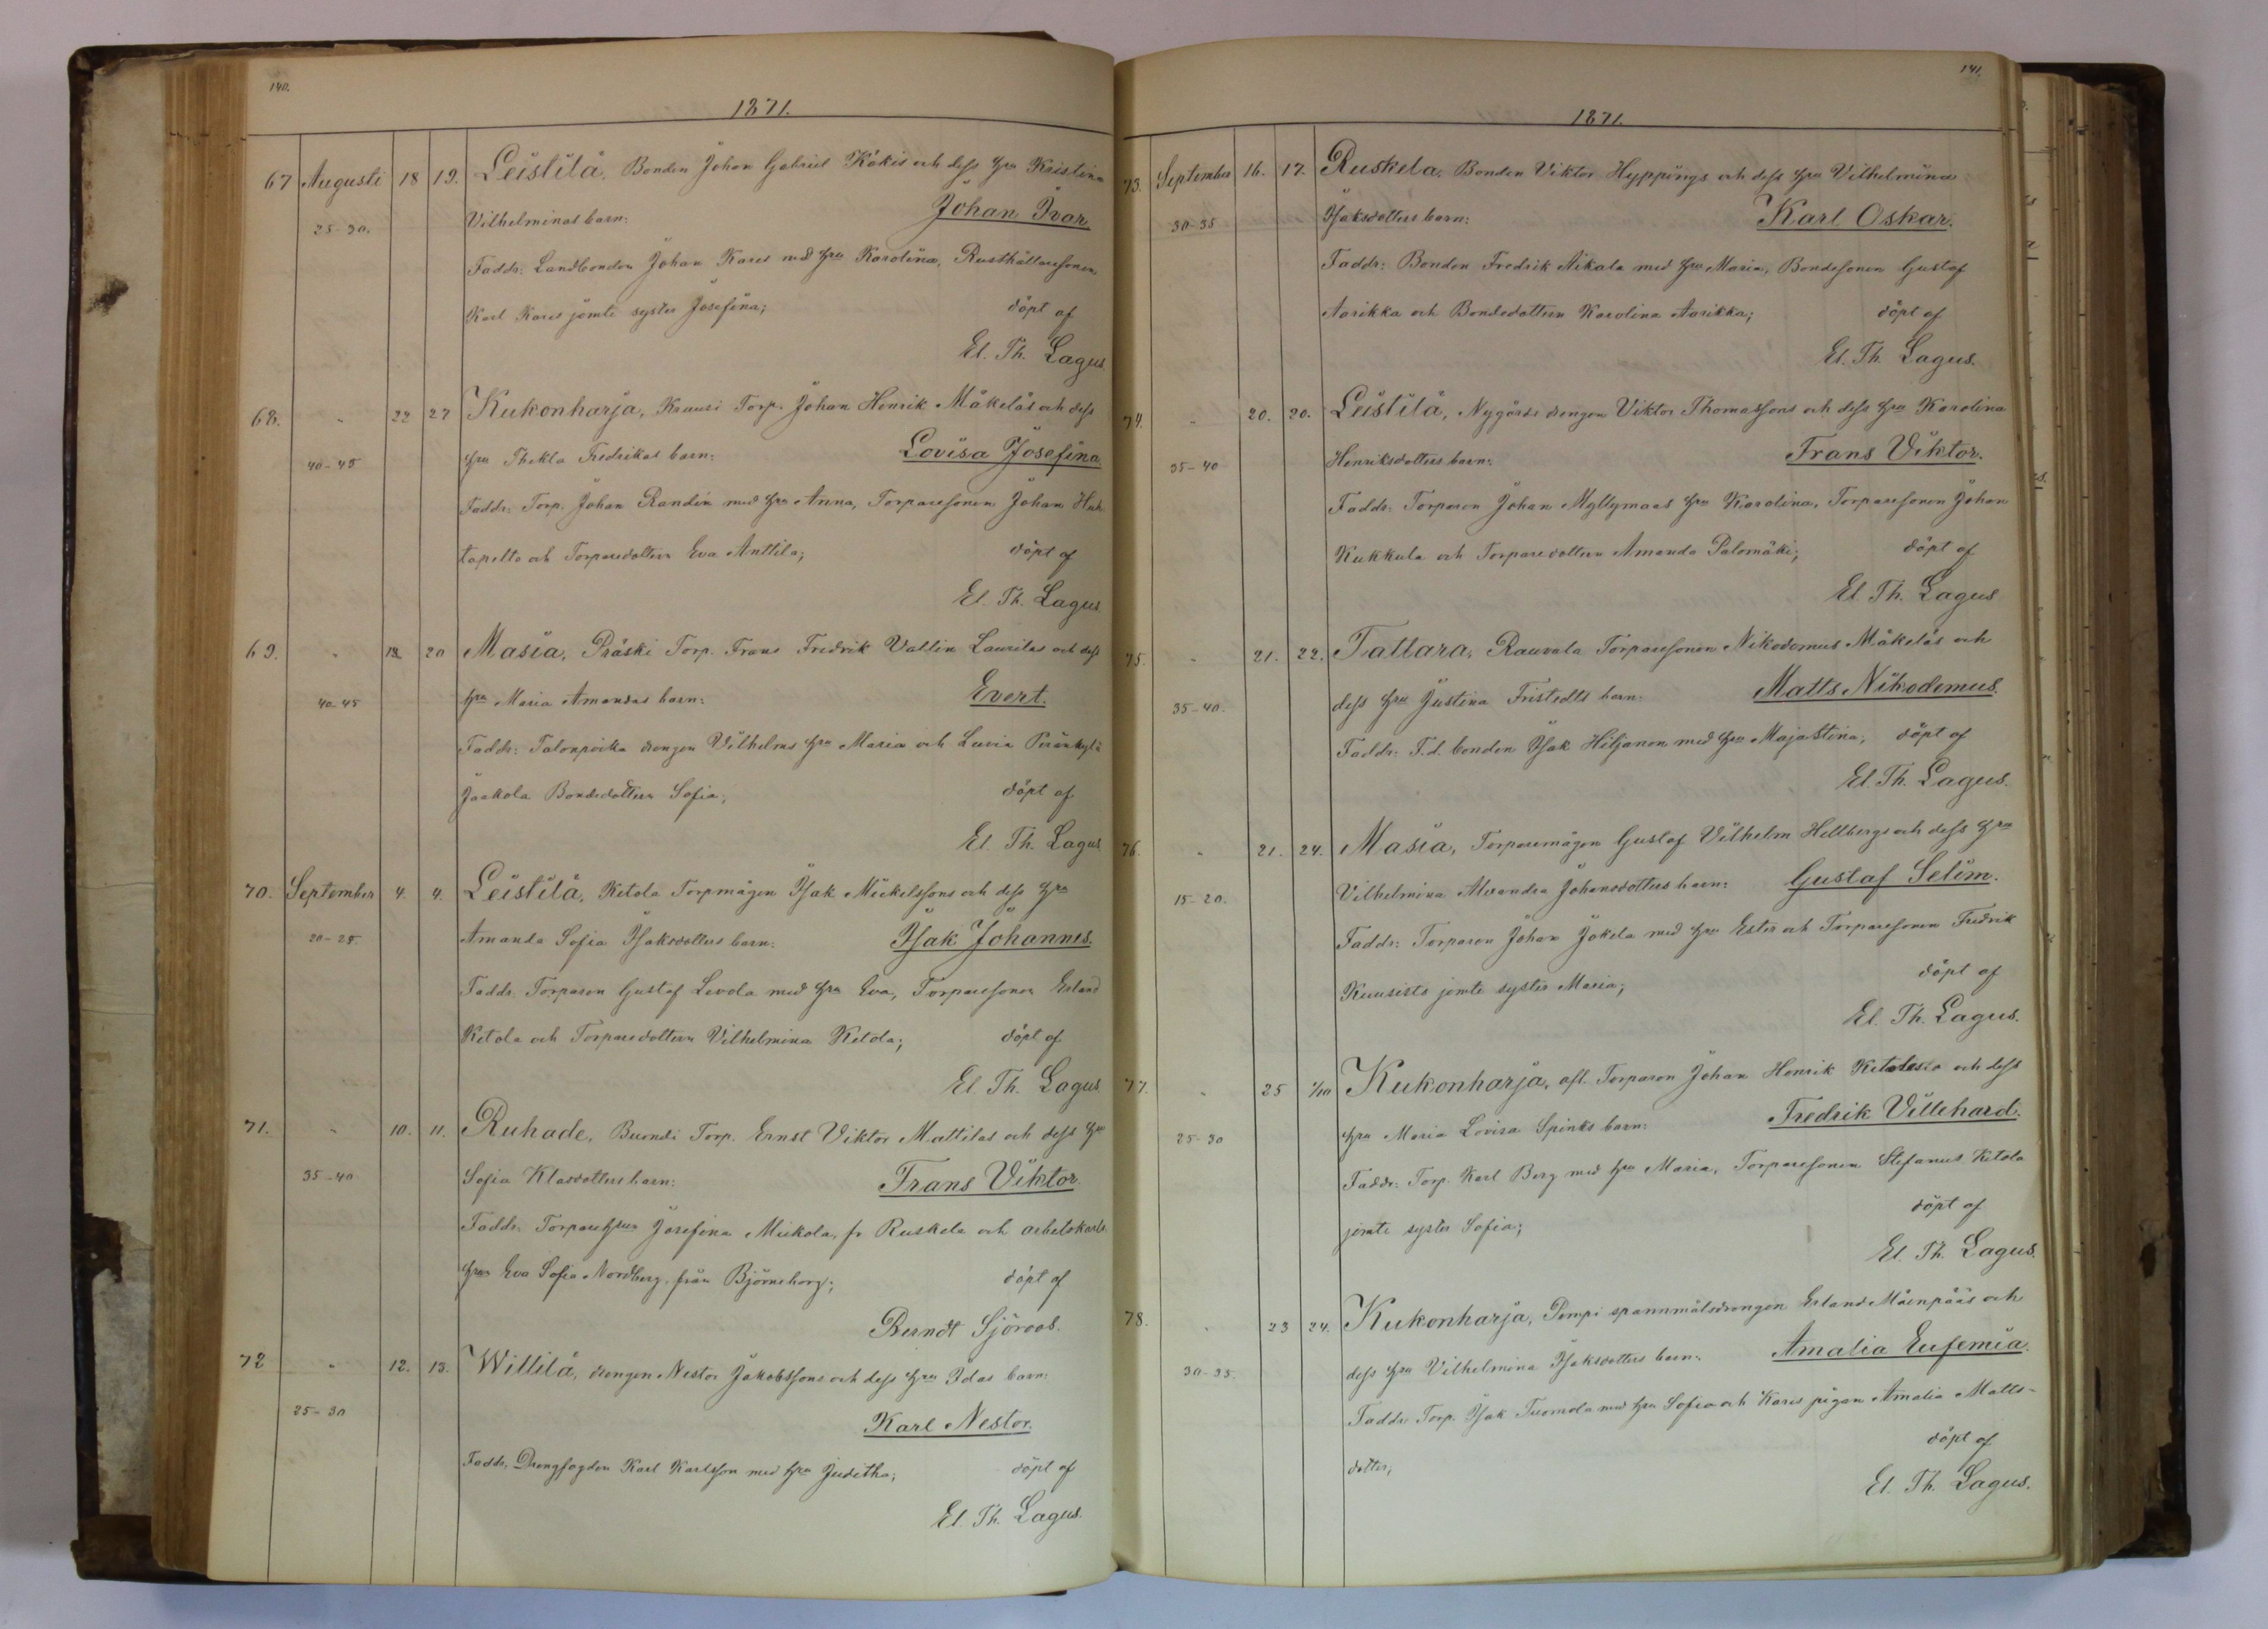 140.
1871.
67 Augusti 18 19. Leistilä, Bonden Johan Gabriel Käkis och dess hru Kristina
25-30. Vilhelminas barn: Johan Ivar.
Faddr: Landbonden Johan Kares med hru Karolina, Rusthållaresonen
Karl Kares jemte syster Josefina; döpt af
El. Th. Lagus
68. " 22 27 Kukonharja, Kruusi Torp. Johan Henrik Mäkeläs och dess
40-45 hru Thekla Fredrikas barn: Lovisa Josefina
Faddr: Torp. Johan Randin med hru Anna, Torparesonen Johan Huh
tapelto och Torparedottern Eva Anttila; döpt af
El. Th. Lagus
69. " 20 Masia, Präski Torp. Frans Fredrik Vallin Laurilas och dess
40-45 hru Maria Amandas barn: Evert.
Faddr: Talonpoika drengen Vilhelms hru Maria och Lavia Peränkylä
Jaakola Bondedottern Sofia; döpt af
El. Th. Lagus
70. September 4. 4. Leistilä, Ketola Torpmågen Isak Mickelssons och dess hru
20-25. Amanda Sofia Isaksdotters barn: Isak Johannes.
Faddr. Torparen Gustaf Levola med hru Eva, Torparesonen Erland
Ketola och Torparedottern Vilhelmina Ketola; döpt af
El. Th. Lagus
71. " 10. 11. Ruhade, Buondi Torp. Ernst Viktor Mattilas och dess hru
35-40 Sofia Klasdotters barn: Frans Viktor.
Faddr. Torparehru Josefina Mickola, fr Ruskela och arbetskarls
hrun Eva Sofia Nordberg, från Björneborg; döpt af
Berndt Sjöroos.
72 " 12. 13. Willilä, drengen Nestor Jakobssons och dess hru Idas barn:
25-30 Karl Nestor.
Faddr, Drengfogden Karl Karlsson med hru Juditha; döpt af
El. Th. Lagus.
141.
1871.
73. September 16. 17. Ruskela, Bonden Viktor Hyppings och dess hru Vilhelmina
30-35 Isaksdotters barn: Karl Oskar.
Faddr: Bonden Fredrik Nikala med hru Maria, Bondesonen Gustaf
Aarikka och Bondedottern Karolina Aarikka; döpt af
El. Th. Lagus.
74. " 20. 20. Leistilä, Nygårds drengen Viktor Thomassons och dess hru Karolina
35-40 Henriksdotters barn: Frans Viktor.
Faddr: Torparen Johan Myllymaas hru Karolina, Torparesonen Johan
Kukkula och Torparedottern Amanda Palomäki; döpt af
El. Th. Lagus
75. " 21. 22. Tattara, Rauvala Torparesonen Nikodemus Mäkeläs och
35-40. dess hru Justina Fristedts barn: Matts Nikodemus.
Faddr: F.d. bonden Isak Hiljanen med hru Maja Stina; döpt af
El. Th. Lagus.
76. " 21. 24. Masia, Torparemågen Gustaf Vilhelm Hellbergs och dess hru
15-20. Vilhelmina Alexandra Johansdotters barn: Gustaf Selim.
Faddr: Torparen Johan Jokela med hru Ester och Torparesonen Fredrik
Kuusisto jemte syster Maria; döpt af
El. Th. Lagus.
77. " 25 1/10 Kukonharja, afl. Torparen Johan Henrik och dess
25-30 hru Maria Lovisa Spinks barn: Fredrik Villehard.
Faddr: Torp. Karl Berg med hru Maria, Torparesonen Stefanus Ketola
jemte syster Sofia; döpt af
El. Th. Lagus.
78. " 23 24. Kukonharja, Pompi spannmålsdrengen Erland Mäenpääs och
30-35. dess hru Vilhelmina Isaksdotters barn: Amalia Eufemia.
Faddr: Torp. Isak Tuomola med hru Sofia och Kares pigan Amalia Matts-
dotter; döpt af
El. Th. Lagus.